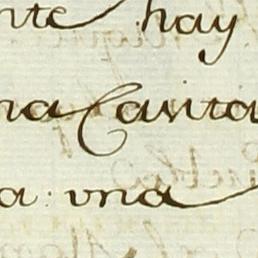 nte hay
na Canta
a: vna